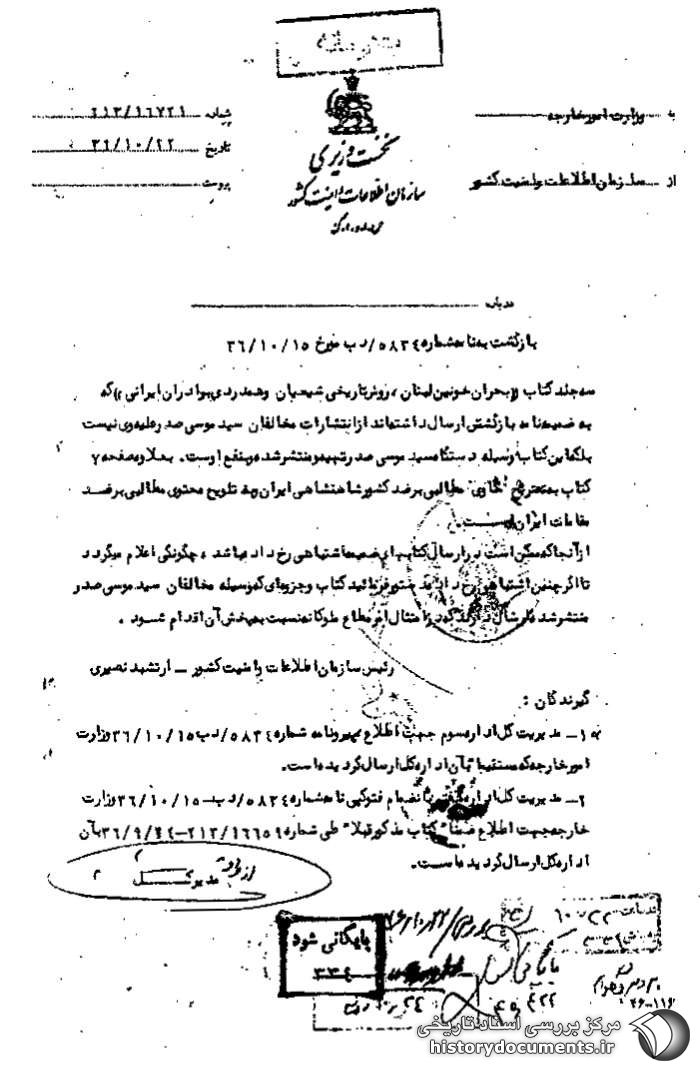 محرمانه
به وزارت امور خارجه
از سازمان اطلاعات و امنیت کشور
نخست وزیری
سازمان اطلاعات و امنیت کشور
شماره ۲۱۳/۱۶۷۲۱
تاریخ ۳۶/۱۰/۲۲
پیوست
درباره
بازگشت به نامه شماره ۵۸۳۴/د ب مورخ ۳۶/۱۰/۱۵
سه جلد کتاب ((بحران خونین لبنان، روش تاریخی شیعیان و همدردی برادران ایرانی)) که
به ضمیمه نامه بازگشتی ارسال داشته‌اند از انتشارات مخالفان سید موسی صدر و علیه وی نیست
بلکه این کتاب وسیله دستگاه سید موسی صدر تهیه و منتشر شده و بنفع اوست. بعلاوه صفحه ۷
کتاب به تصریح حاوی مطالبی بر ضد کشور شاهنشاهی ایران و به تلویح محتوی مطالبی بر ضد
مقامات ایران است.
از آنجا که ممکن است در ارسال کتابهای ضمیمه اشتباهی رخ داده باشد، چگونگی اعلام میگردد
تا اگر چنین اشتباهی رخ داده دستور فرمائید کتاب و جزوه‌ای که وسیله مخالفان سید موسی صدر
منتشر شده ارسال دارند که در امتثال امر مطاع ملوکانه نسبت به پخش آن اقدام شود.
رئیس سازمان اطلاعات و امنیت کشور - ارتشبد نصیری
گیرندگان:
۱- مدیریت کل اداره سوم جهت اطلاع پیرو نامه شماره ۵۸۳۴/د ب ۳۶/۱۰/۱۵ وزارت
امور خارجه که مستقیما بآن اداره کل ارسال گردیده است.
۲- مدیریت کل اداره هفتم بانضمام فتوکپی نامه شماره ۵۸۳۴/د ب - ۳۶/۱۰/۱۵ وزارت
خارجه جهت اطلاع ضمنا" کتاب مذکور قبلا" طی شماره ۲۱۳/۱۶۶۵۹-۳۶/۹/۲۴ بآن
اداره کل ارسال گردیده است.
از طرف
مدیر کل
بایگانی شود
۳۳۴
مرکز بررسی اسناد تاریخی
historydocuments.ir